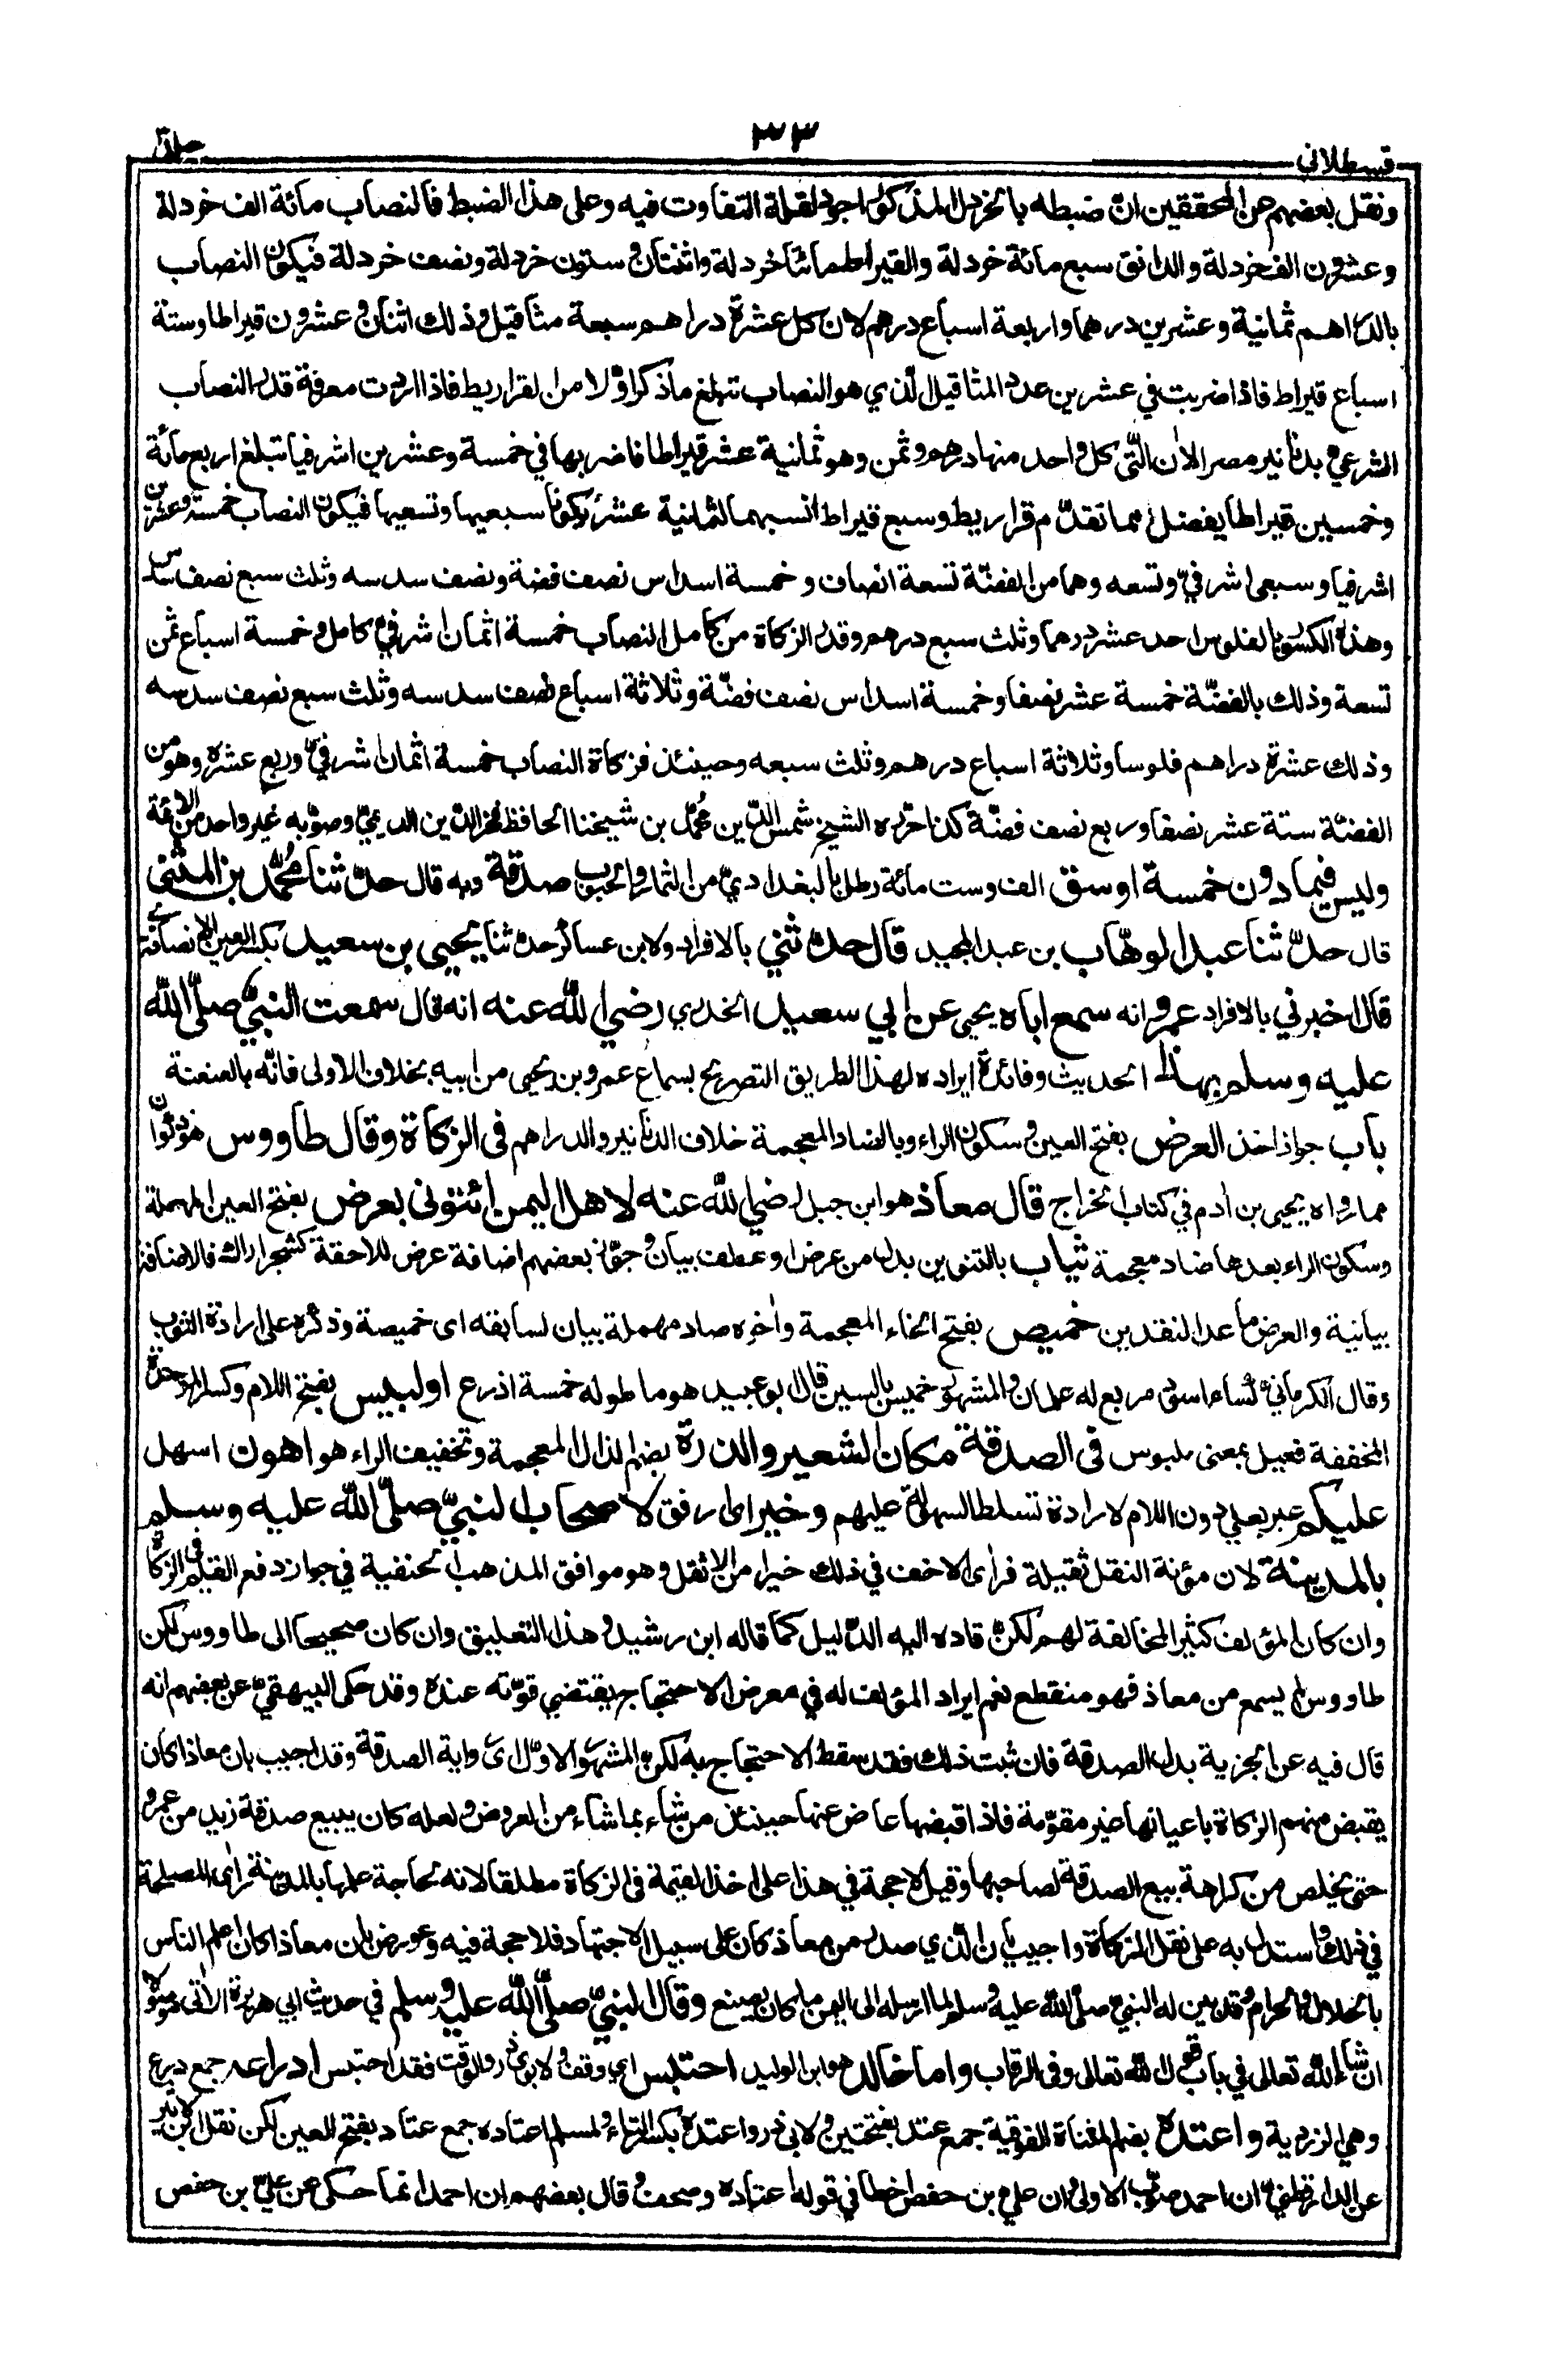 قسطلاني ٣٣ جلد
ونقل بعضهم عن المحققين انّ ضبطه بالخردل المذكور اجود لقلة التفاوت فيه وعلى هذا الضبط فالنصاب مائة الف خردلة
وعشرون الف خردلة والدانق سبع مائة خردلة والقيراط مائتا خردلة واثنتان وستون خردلة ونصف خردلة فيكون النصاب
بالدراهم ثمانية وعشرين درهما واربعة اسباع درهم لان كل عشرة دراهم سبعة مثاقيل وذلك اثنان وعشرون قيراطا وستة
اسباع قيراط فاذا ضربت في عشرين عدد المثاقيل الّذي هو النصاب تبلغ ما ذكر اوّلا من القراريط فاذا اردت معرفة قدر النصاب
الشرعي بدنانير مصر الاٰن الّتى كل واحد منها درهم وثمن وهو ثمانية عشر قيراطا فاضربها في خمسة وعشرين اشرفيا تبلغ اربع مائة
وخمسين قيراطا يفضل مما تقدّم قراريط وسبع قيراط انسبهما لثمانية عشر يكونا سبعيها وتسعيها فيكون النصاب خمسة وعشرين
اشرفيا وسبعى اشرفيّ وتسعه وهما من الفضّة تسعة انصاف وخمسة اسداس نصف فضة ونصف سدسه وثلث سبع نصف سدسه
وهذه الكسور بالفلوس احد عشر درهما وثلث سبع درهم وقدر الزكاة من كامل النصاب خمسة اثمان اشرفيّ كامل وخمسة اسباع ثمن
تسعة وذلك بالفضّة خمسة عشر نصفا وخمسة اسداس نصف فضّة وثلاثة اسباع نصف سدسه وثلث سبع نصف سدسه
وذلك عشرة دراهم فلوسا وثلاثة اسباع درهم وثلث سبعه وحينئذ فزكاة النصاب خمسة اثمان اشرفيّ وربع عشره وهو من
الفضّة ستة عشر نصفا وربع نصف فضّة كذا حرّره الشيخ شمس الدّين محُمّد بن شيخنا الحافظ فخر الدّين الديميّ وصوّبه غير واحد من الائمة
وليس فيما دون خمسة اوسق الف وست مائة رطل بالبغداديّ من الثمار والحبوب صدقة وبه قال حدّثنا محُمّد بن المثنى
قال حدّثنا عبد الوهّاب بن عبد المجيد قال حدّثني بالافراد ولابن عساكر حدّثنا يحيى بن سعيد بكسر العين الانصاري
قال اخبرني بالافراد عمرو انه سمع اباه يحيى عن ابي سعيد الخدري رضي الله عنه انه قال سمعت النبيّ صلّى الله
عليه وسلم بهذا الحديث وفائدة ايراده لهذا الطريق التصريح بسماع عمرو بن يحيى من ابيه بخلاف الاولى فانّه بالعنعنة
باب جواز اخذ العرض بفتح العين وسكون الراء وبالضاد المعجمة خلاف الدنانير والدراهم في الزكاة وقال طاووس
مما رواه يحيى بن اٰدم في كتاب الخراج قال معاذ هو ابن جبل رضي الله عنه لاهل اليمن ائتونى بعرض بفتح العين المهملة
وسكون الراء بعدها ضاد معجمة ثياب بالتنوين بدل من عرض او عطف بيان وجوّز بعضهم اضافة عرض للاحقة كشجر اراك فالاضافة
بيانية والعرض ما عدا النقدين خميص بفتح الخاء المعجمة واٰخره صاد مهملة بيان لسابقه اى خميصة وذكره على ارادة الثوب
وقال الكرمانيّ كساء اسود مربع له علمان والمشهور خميس بالسين قال ابو عبيد هو ما طوله خمسة اذرع او لبيس بفتح اللام وكسر الموحدة
المخففة فعيل بمعنى ملبوس في الصدقة مكان الشعير والذرة بضم الذال المعجمة وتخفيف الراء هو اهون اسهل
عليكم عبر بعلى دون اللام لارادة تسلط السهولة عليهم وخير اى ارفق لاصحاب النبيّ صلّى الله عليه وسلم
بالمدينة لان مؤنة النقل ثقيلة فراى الاخف في ذلك خيرا من الاثقل وهو موافق المذهب الحنفية في جواز دفع القيم في الزكاة
وان كان المؤلف كثير المخالفة لهم لكن قاده اليه الدّليل كما قاله ابن رشيد وهذا التعليق وان كان صحيحا الى طاووس لكن
طاووس لم يسمع من معاذ فهو منقطع نعم ايراد المؤلف له في معرض الاحتجاج يقتضي قوّته عنده وقد حكى البيهقيّ عن بعضهم انه
قال فيه عن الجزية بدل الصدقة فان ثبت ذلك فقد سقط الاحتجاج به لكن المشهور الاوّل اى رواية الصدقة وقد اجيب بان معاذا كان
يقبض منهم الزكاة باعيانها غير مقوّمة فاذا قبضها عاض عنها حينئذ من شاء بما شاء من العروض ولعله كان يبيع صدقة زيد من عمرو
حتى يخلص من كراهة بيع الصدقة لصاحبها وقيل لا حجة في هذا على اخذ القيمة في الزكاة مطلقا لانه لحاجة علمها بالمدينة راى المصلحة
في ذلك واستدل به على نقل الزكاة واجيب بان الّذي صدر من معاذ كان على سبيل الاجتهاد فلا حجة فيه وعورض بان معاذا كان اعلم الناس
بالحلال والحرام وقد بين له النبيّ صلّى الله عليه وسلم لما ارسله الى اليمن ما كان يصنع وقال النبيّ صلّى الله عليه وسلم في حديث ابي هريرة الاٰتى موصولا
ان شاء الله تعالى في باب قول الله تعالى وفى الرقاب واما خالد هو ابن الوليد احتبس اي وقف ولابوي ذر والوقت فقد احتبس ادراعه جمع درع
وهي الزردية واعتده بضم المثناة الفوقية جمع عتد بفتحتين ولابى ذر واعتده بكسر التاء ولمسلم اعتاده جمع عتاد بفتح العين لكن نقل ابن الاثير
عن الدارقطنيّ ان احمد صوّب الاولى وان علي بن حفص اخطا في قوله اعتاده وصحف وقال بعضهم ان احمد انما حكى عن عليّ بن حفص